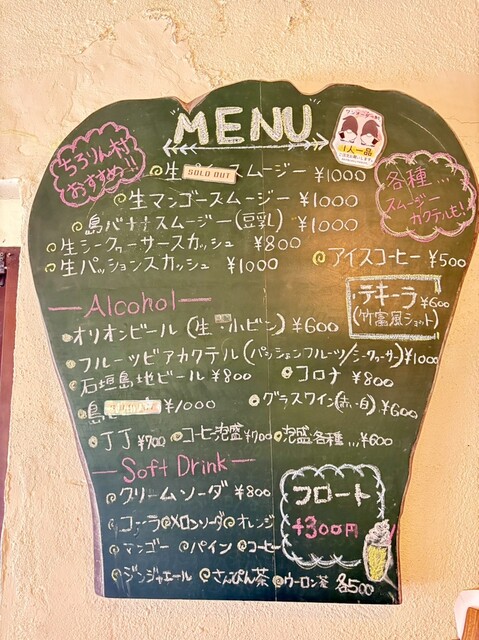 MENU
ちろりん村
おすすめ!!
ワンオーダー制
1人一品
各種...
スムージー
カクテルも!!
生 スムージー ¥1000
SOLD OUT
生マンゴースムージー ¥1000
島バナナスムージー(豆乳) ¥1000
生シークヮーサースカッシュ ¥800
アイスコーヒー ¥500
生パッションスカッシュ ¥1000
Alcohol
テキーラ ¥600
(竹富風ショット)
オリオンビール (生・小ビン) ¥600
フルーツビアカクテル (パッションフルーツ/シークヮーサー) ¥1000
石垣島地ビール ¥800
コロナ ¥800
島 ¥1000
グラスワイン(赤・白) ¥600
丁丁 ¥700
コーヒー泡盛 ¥700
泡盛各種... ¥600
Soft Drink
クリームソーダ ¥800
フロート
+300円
コーラ メロンソーダ オレンジ
マンゴー パイン コーヒー
ジンジャエール さんぴん茶 ウーロン茶 各500